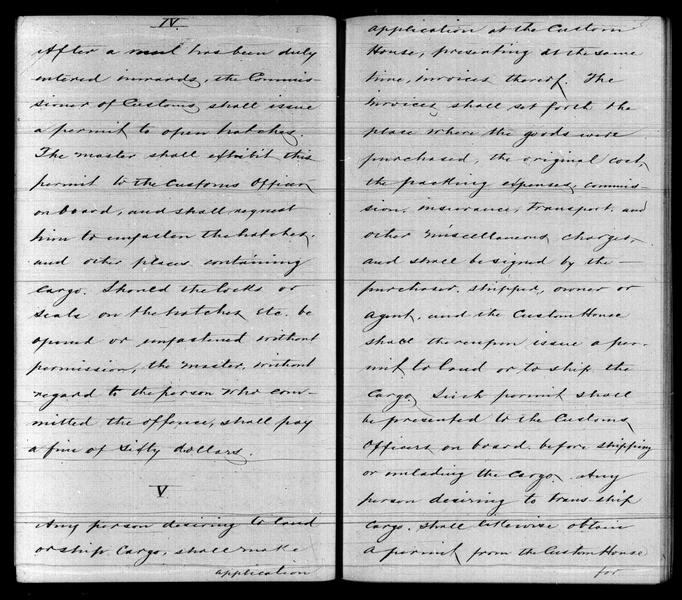 IV.
After a ship has been duly
entered inwards, the Commis-
sioner of Customs shall issue
a permit to open hatches.
The master shall exhibit this
permit to the Customs Officer
on board, and shall request
him to unfasten the hatches,
and other places containing
Cargo. Should the locks or
seals on the hatches etc. be
opened or unfastened without
permission, the master, without
regard to the person who com-
mitted the offence, shall pay
a fine of sixty dollars.
V
Any person desiring to land
or ship Cargo, shall make
application
application at the Custom
House, presenting at the same
time, invoices thereof. The
invoices shall set forth the
place where the goods were
purchased, the original cost,
the packing expenses, commis-
sion, insurance, transport, and
other miscellaneous charges,
and shall be signed by the
purchaser, shipper, owner or
agent, and the Custom House
shall thereupon issue a per-
mit to land or to ship the
Cargo. Such permit shall
be presented to the Customs
Officers on board, before shipping
or unlading the Cargo. Any
person desiring to trans-ship
Cargo, shall likewise obtain
a permit from the Custom House
for